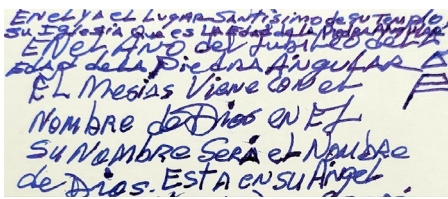 EN el Y A el LUGAR SANTísimo de su Templo
su Iglesia que es LA EDAD de la PiedRA ANgulAR
EN el AÑO del Jubileo de LA
EDAD de la PiedRA ANGULAR
EL Mesías Viene CON el
NOMBRe de Dios eN ÉL
Su NOMBRe SeRÁ el NOMBRe
de Dios. ESTA eN SU ÁNgel